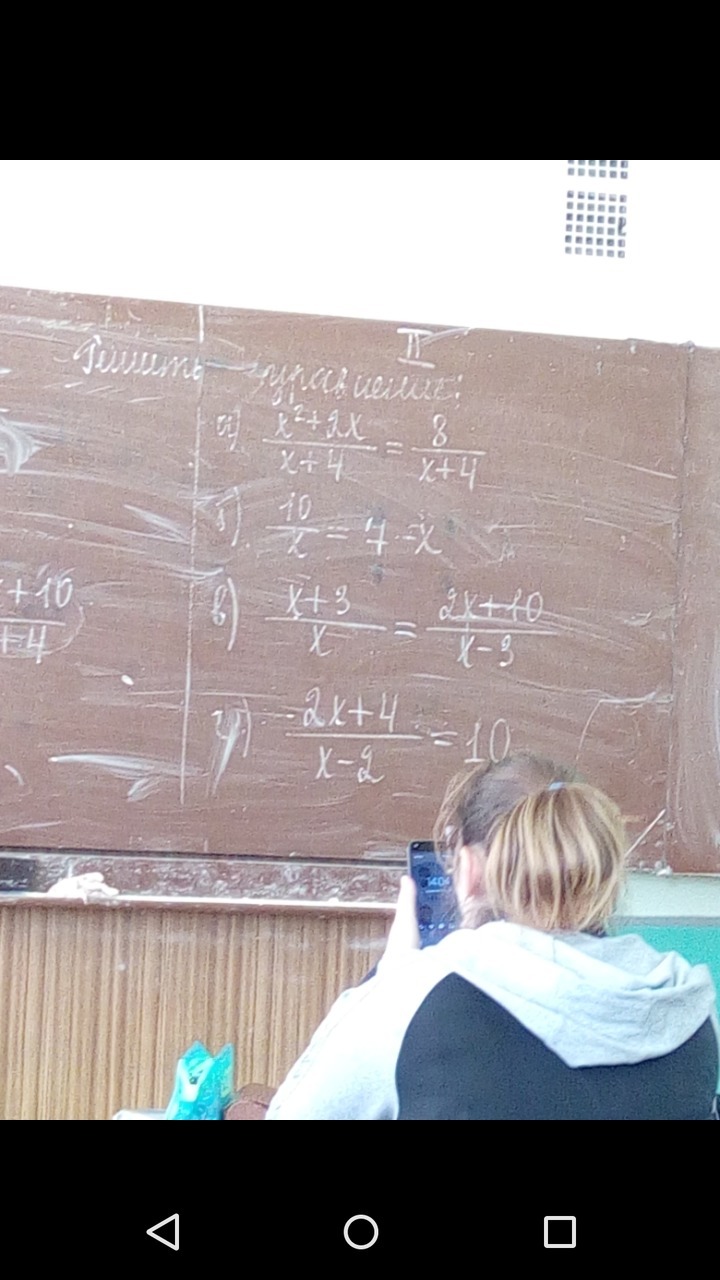 II
Решить уравнение:
а) \frac{x²+2x}{x+4} = \frac{8}{x+4}
б) \frac{10}{x} = 7 - x
в) \frac{x+3}{x} = \frac{2x+10}{x-3}
г) \frac{2x+4}{x-2} = 10
+10
+4